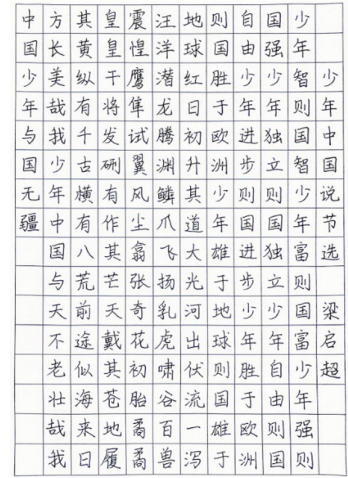 少年中国说节选梁启超
少年智则国智少年富则国富少年强则
国强少年独立则国独立少年自由则国
自由少年进步则国进步少年胜于欧洲
则国胜于欧洲少年雄于地球则国雄于
地球红日初升其道大光河出伏流一泻
汪洋潜龙腾渊鳞爪飞扬乳虎啸谷百兽
震惶鹰隼试翼风尘翕张奇花初胎矞矞
皇皇干将发硎有作其芒天戴其苍地履
其黄纵有千古横有八荒前途似海来日
方长美哉我少年中国与天不老壮哉我
中国少年与国无疆